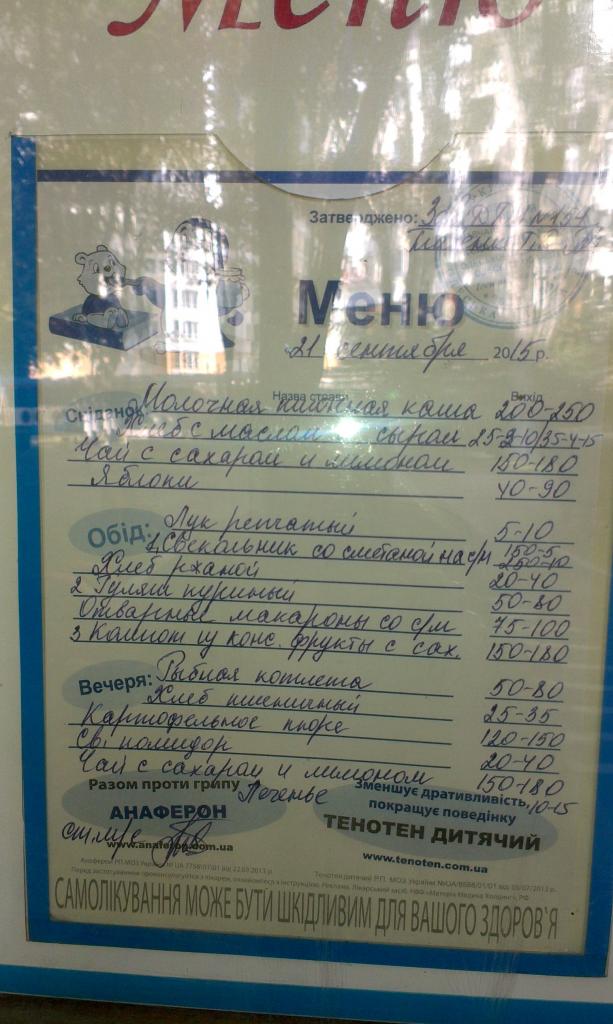 Меню
Затверджено:
Меню
21 сентября 2015 р.
Назва страви Вихід
Сніданок: Молочная пшенная каша 200-250
Хлеб с маслом сыром
Чай с сахаром и лимоном 150-180
Яблоки 40-90
Обід: Лук репчатый 5-10
1 Свекольник со сметаной на с/м 150-5
250-10
Хлеб ржаной 20-40
2 Гуляш куриный 50-80
Отварные макароны со с/м 75-100
3 Компот конс. фрукты с сах. 150-180
Вечеря: Рыбная котлета 50-80
Хлеб пшеничный 25-35
Картофельное пюре 120-150
Св. помидор 20-40
Чай с сахаром и лимоном 150-180
Печенье 10-15
Разом проти грипу
АНАФЕРОН
www.anaferon.com.ua
Зменшує дративливість,
покращує поведінку
ТЕНОТЕН ДИТЯЧИЙ
www.tenoten.com.ua
САМОЛІКУВАННЯ МОЖЕ БУТИ ШКІДЛИВИМ ДЛЯ ВАШОГО ЗДОРОВ`Я